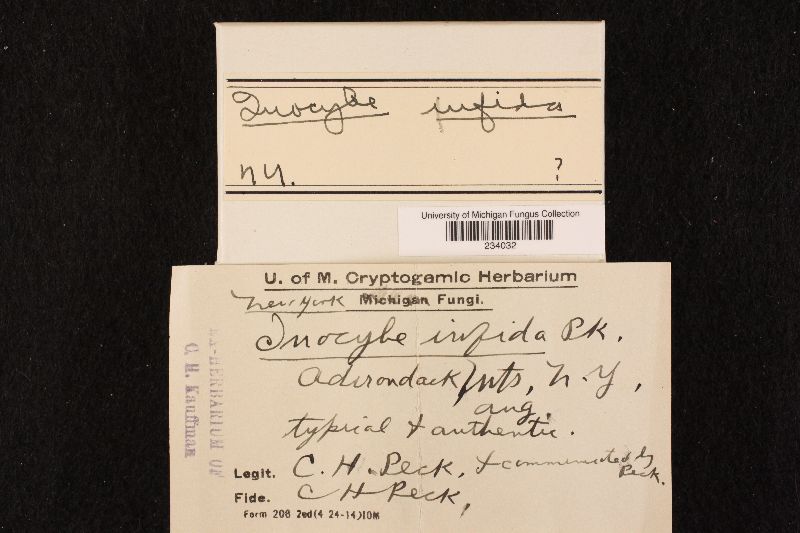 Inocybe infida
NY. ?
University of Michigan Fungus Collection
234032
U. of M. Cryptogamic Herbarium
New York Michigan Fungi.
Inocybe infida Pk.
Adirondack Mts, N.Y,
aug.
typical & authentic.
Legit. C. H. Peck, & communicated by
Peck.
Fide. C H Peck,
Form 208 2ed(4 24-14)10M
EX-HERBARIUM OF
C. H. Kauffman